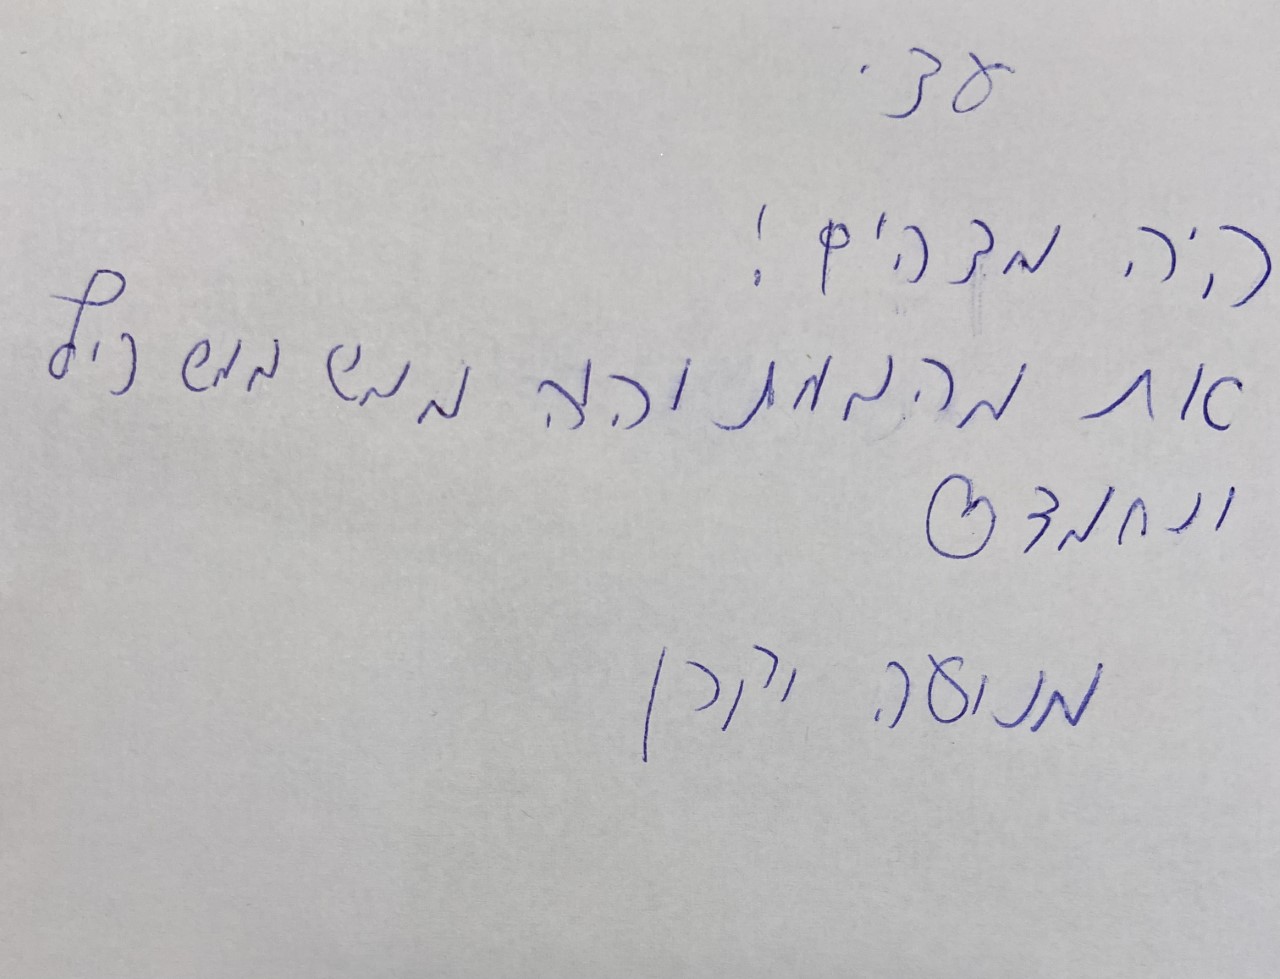 עדי
היה מדהים!
את מהממת והיה ממש ממש כיף
ונחמד
מנועה וקרן